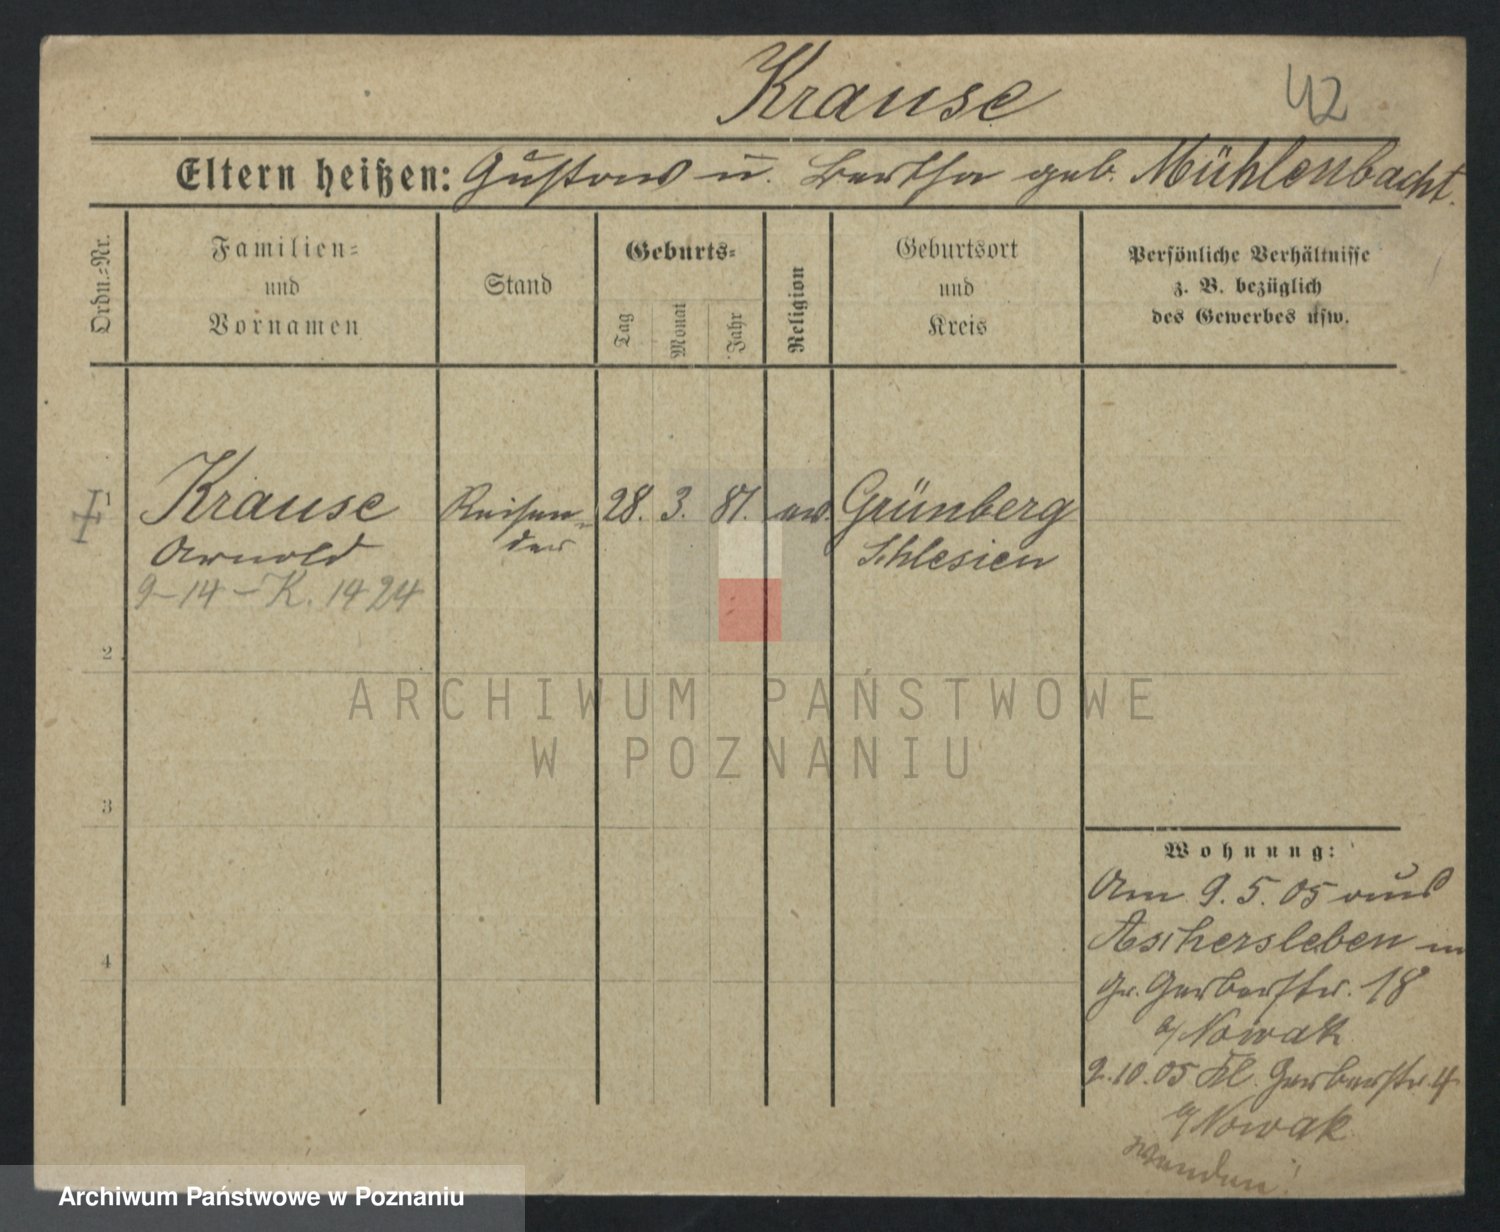 Krause
42
Eltern heißen: Gustav u. Bertha geb. Mühlenbacht.
Ordn.-Nr.
Familien-
und
Vornamen
Stand
Geburts-
Tag
Monat
Jahr
Religion
Geburtsort
und
Kreis
Persönliche Verhältnisse
z. B. bezüglich
des Gewerbes usw.
1
Krause
Arnold
9-14-K. 1424
Reisen-
der
28. 3. 81. ev.
Grünberg
Schlesien
2
3
4
ARCHIWUM PAŃSTWOWE
W POZNANIU
Wohnung:
Am 9.5.05 aus
Aschersleben in
Gr. Gerberstr. 18
b/ Nowak
2.10.05 Kl. Gerberstr. 4
b/ Nowak
wenden!
Archiwum Państwowe w Poznaniu